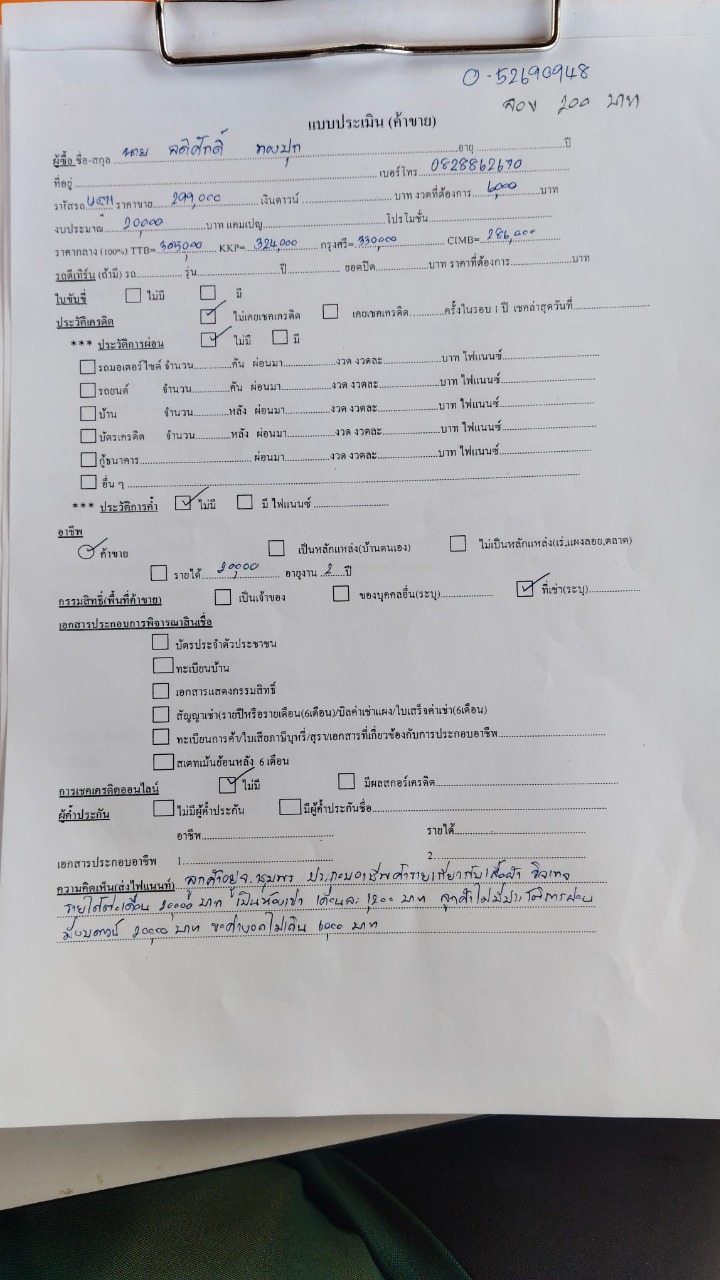 0-52690948
จอง 200 บาท
แบบประเมิน (ค้าขาย)
ผู้ซื้อ ชื่อ-สกุล นาย ทองปุก อายุ ปี
ที่อยู่ เบอร์โทร 0828862670
รหัสรถ ราคาขาย 299,000 เงินดาวน์ บาท งวดที่ต้องการ 6,000 บาท
งบประมาณ 20,000 บาท แคมเปญ โปรโมชั่น
ราคากลาง (100%) TTB= 305,000 KKP= 324,000 กรุงศรี= 330,000 CIMB= 286,000
รถตีเทิร์น (ถ้ามี) รถ รุ่น ปี ยอดปิด บาท ราคาที่ต้องการ บาท
ใบขับขี่ ไม่มี มี
ประวัติเครดิต ไม่เคยเชคเครดิต เคยเชคเครดิต ครั้งในรอบ 1 ปี เชคล่าสุดวันที่
*** ประวัติการผ่อน ไม่มี มี
รถมอเตอร์ไซค์ จำนวน คัน ผ่อนมา งวด งวดละ บาท ไฟแนนซ์
รถยนต์ จำนวน คัน ผ่อนมา งวด งวดละ บาท ไฟแนนซ์
บ้าน จำนวน หลัง ผ่อนมา งวด งวดละ บาท ไฟแนนซ์
บัตรเครดิต จำนวน หลัง ผ่อนมา งวด งวดละ บาท ไฟแนนซ์
กู้ธนาคาร ผ่อนมา งวด งวดละ บาท ไฟแนนซ์
อื่น ๆ
*** ประวัติการค้ำ ไม่มี มี ไฟแนนซ์
อาชีพ
ค้าขาย เป็นหลักแหล่ง(บ้านตนเอง) ไม่เป็นหลักแหล่ง(เร่,แผงลอย,ตลาด)
รายได้ 20,000 อายุงาน 2 ปี
กรรมสิทธิ์(พื้นที่ค้าขาย) เป็นเจ้าของ ของบุคคลอื่น(ระบุ) ที่เช่า(ระบุ)
เอกสารประกอบการพิจารณาสินเชื่อ
บัตรประจำตัวประชาชน
ทะเบียนบ้าน
เอกสารแสดงกรรมสิทธิ์
สัญญาเช่า(รายปีหรือรายเดือน(6เดือน)/บิลค่าเช่าแผง/ใบเสร็จค่าเช่า(6เดือน)
ทะเบียนการค้า/ใบเสียภาษีบุหรี่/สุรา/เอกสารที่เกี่ยวข้องกับการประกอบอาชีพ
สเตทเม้นย้อนหลัง 6 เดือน
การเชคเครดิตออนไลน์ ไม่มี มีผลสกอร์เครดิต
ผู้ค้ำประกัน ไม่มีผู้ค้ำประกัน มีผู้ค้ำประกันชื่อ
อาชีพ รายได้
เอกสารประกอบอาชีพ 1. 2.
ความคิดเห็น(ส่งไฟแนนท์) ลูกค้าอยู่จ.ชุมพร ประกอบอาชีพค้าขายเกี่ยวกับเสื้อผ้า
รายได้ต่อเดือน 20,000 บาท เป็นห้องเช่า เดือนละ 1,200 บาท ลูกค้าไม่มีประวัติการผ่อน
มีงบดาวน์ 20,000 บาท ขอค่างวดไม่เกิน 6,000 บาท